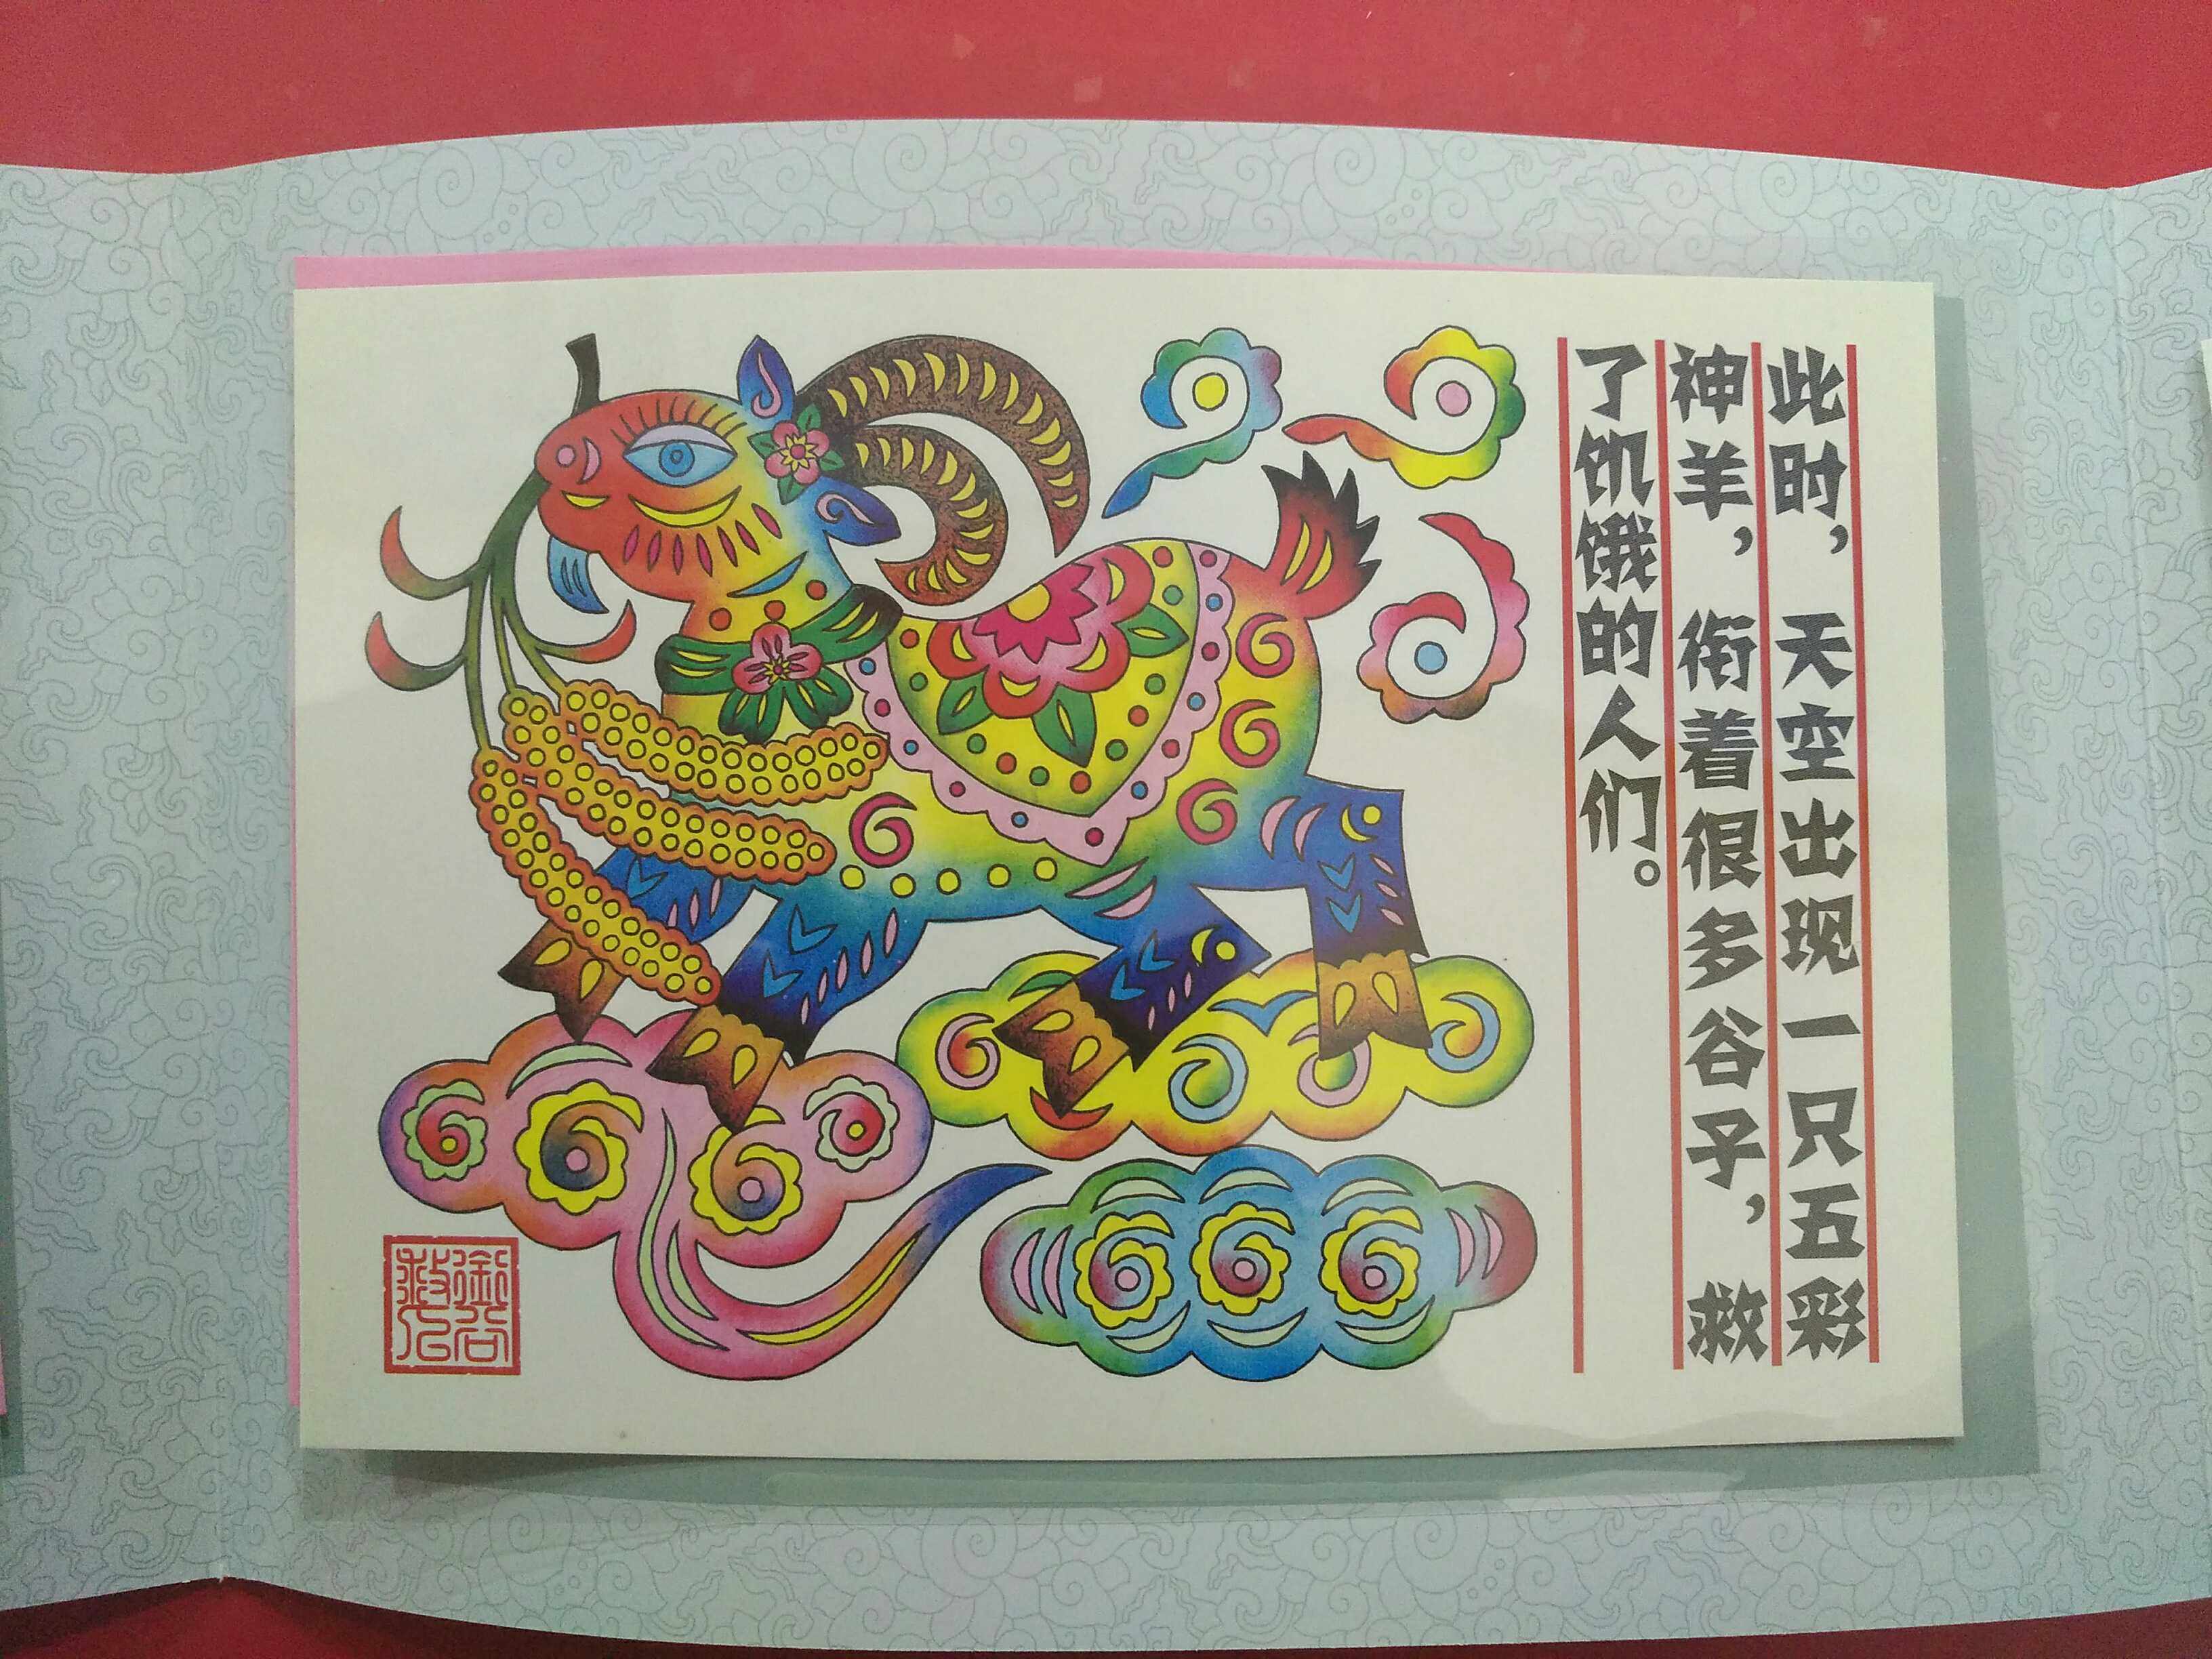 此时，天空出现一只五彩
神羊，衔着很多谷子，救
了饥饿的人们。